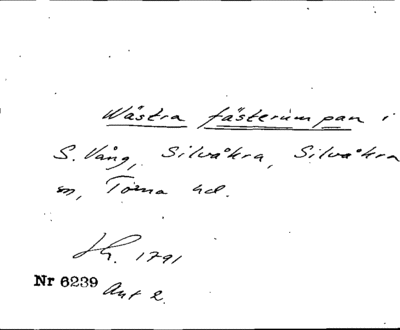 Wästra fästerumpan i
S. Vång, Silvåkra, Silvåkra
sn, Torna hd.
1791
Nr 6239